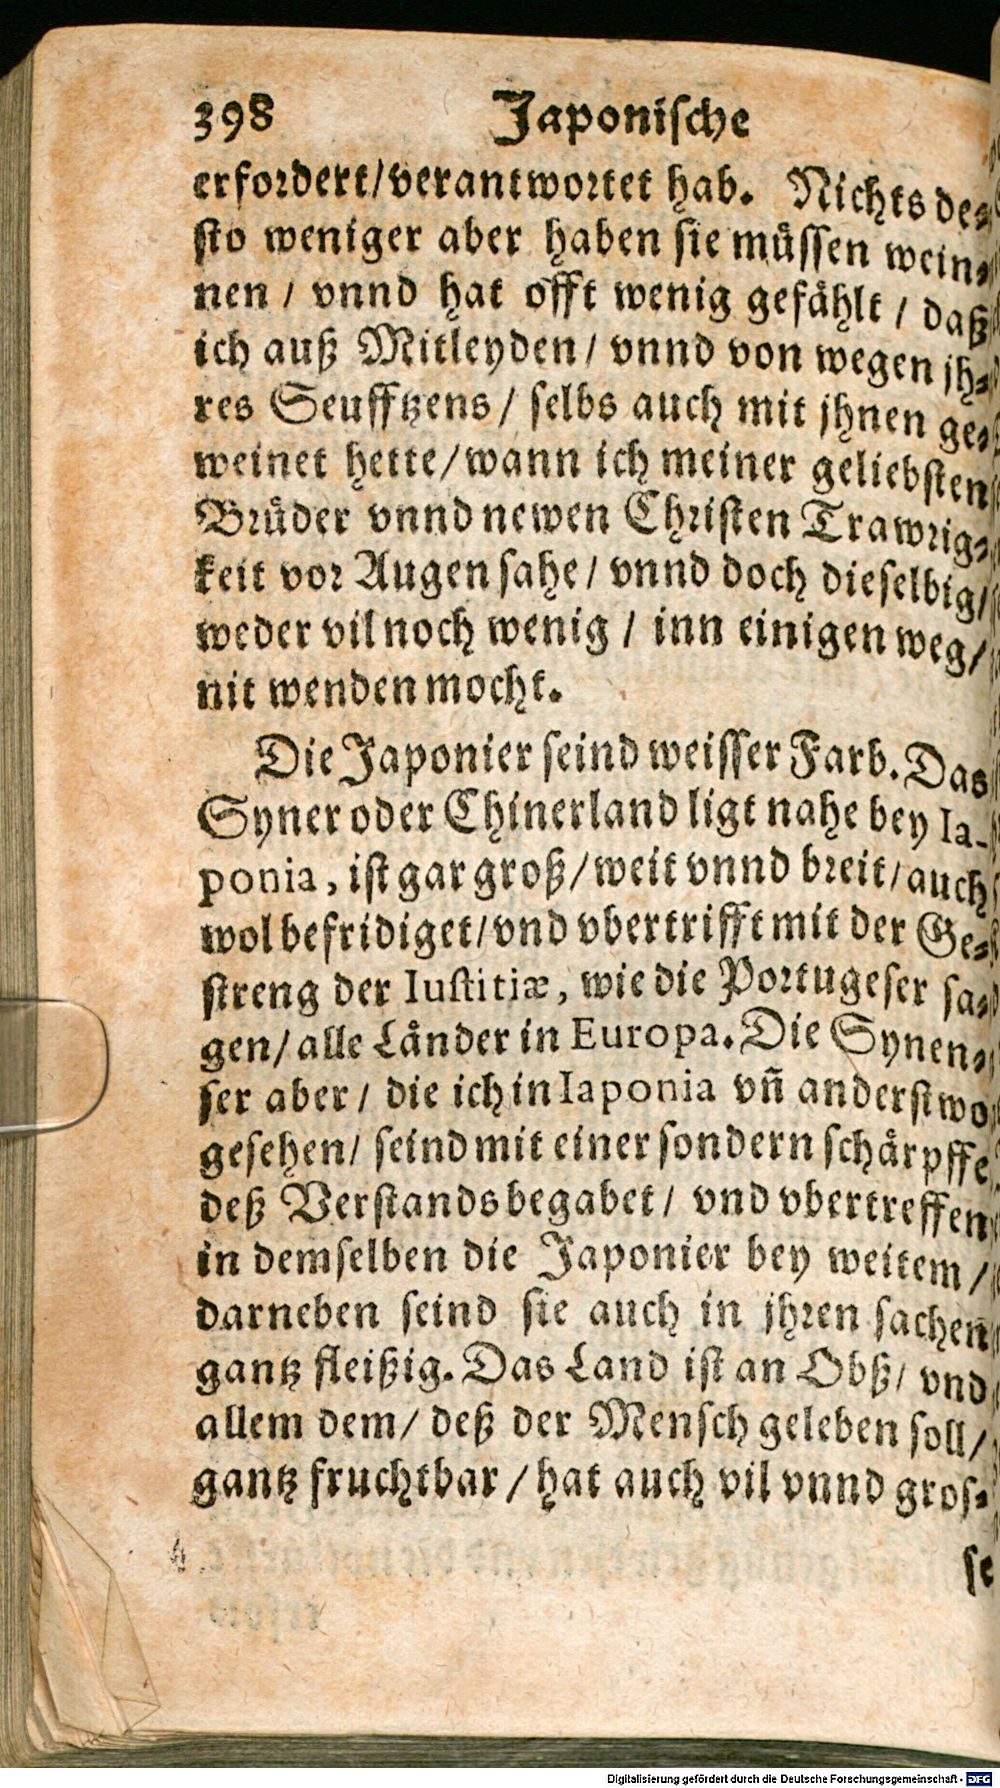 398 Japonische
erfordert/verantwortet hab. Nichts de⸗
sto weniger aber haben sie müssen wein⸗
nen / vnnd hat offt wenig gefählt / daß
ich auß Mitleyden / vnnd von wegen jh⸗
res Seufftzens / selbs auch mit jhnen ge⸗
weinet hette/wann ich meiner geliebsten
Brüder vnnd newen Christen Trawrig⸗
keit vor Augen sahe / vnnd doch dieselbig/
weder vil noch wenig / inn einigen weg/
nit wenden mocht.
Die Japonier seind weisser Farb. Das
Syner oder Chinerland ligt nahe bey Ia-
ponia, ist gar groß/weit vnnd breit/auch
wol befridiget/vnd vbertrifft mit der Ge⸗
streng der Iustitiæ, wie die Portugeser sa⸗
gen/ alle Länder in Europa. Die Synen⸗
ser aber / die ich in Iaponia vñ anderstwo
gesehen/ seind mit einer sondern schärpffe
deß Verstands begabet/ vnd vbertreffen
in demselben die Japonier bey weitem /
darneben seind sie auch in jhren sachen
gantz fleißig. Das Land ist an Obß/ vnd
allem dem/ deß der Mensch geleben soll/
gantz fruchtbar / hat auch vil vnnd gros⸗
se
Digitalisierung gefördert durch die Deutsche Forschungsgemeinschaft - DFG